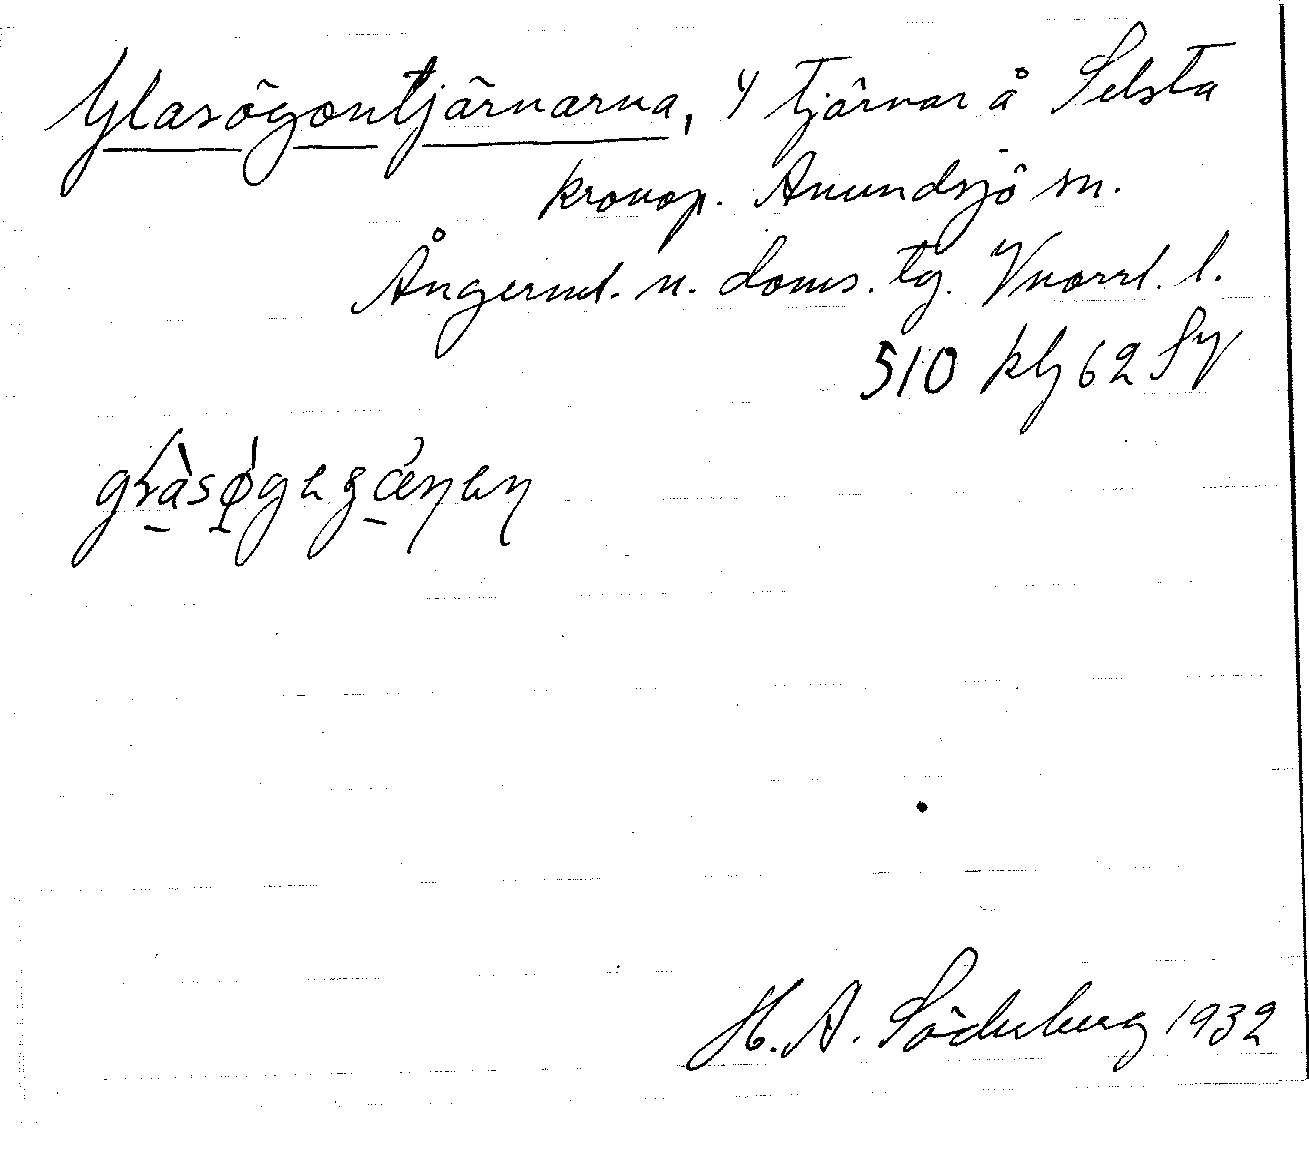 Glasögontjärnarna, 4 tjärnar å Selsta
kronop. Anundsjö sn.
Ångerml. n. doms. tg. Vnorrl. l.
510 klj 62 Sy
H. A. Söderberg 1932